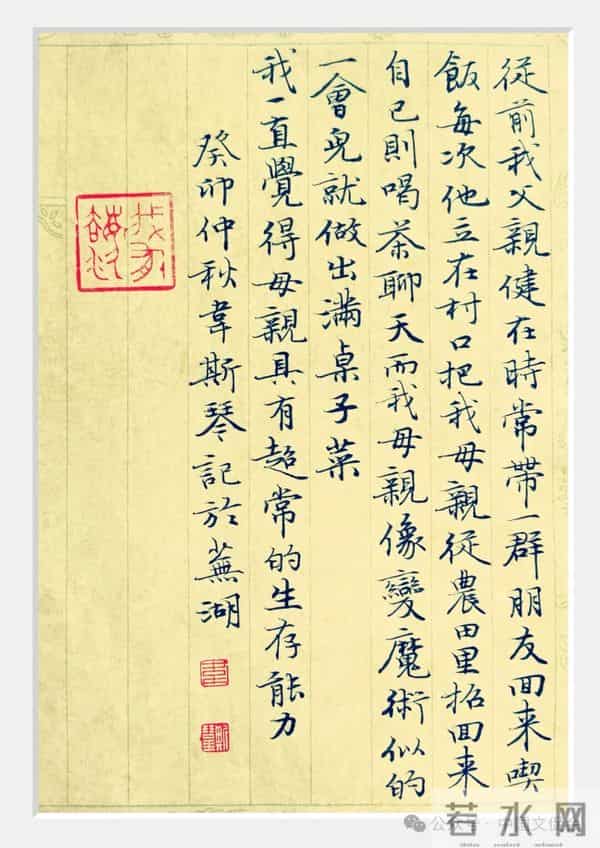 從前我父親健在時常帶一群朋友回来喫
飯每次他立在村口把我母親從農田里招回来
自已則喝茶聊天而我母親像變魔術似的
一會兒就做出滿桌子菜
我一直覺得母親具有超常的生存能力
癸卯仲秋韋斯琴記於蕪湖
若水网